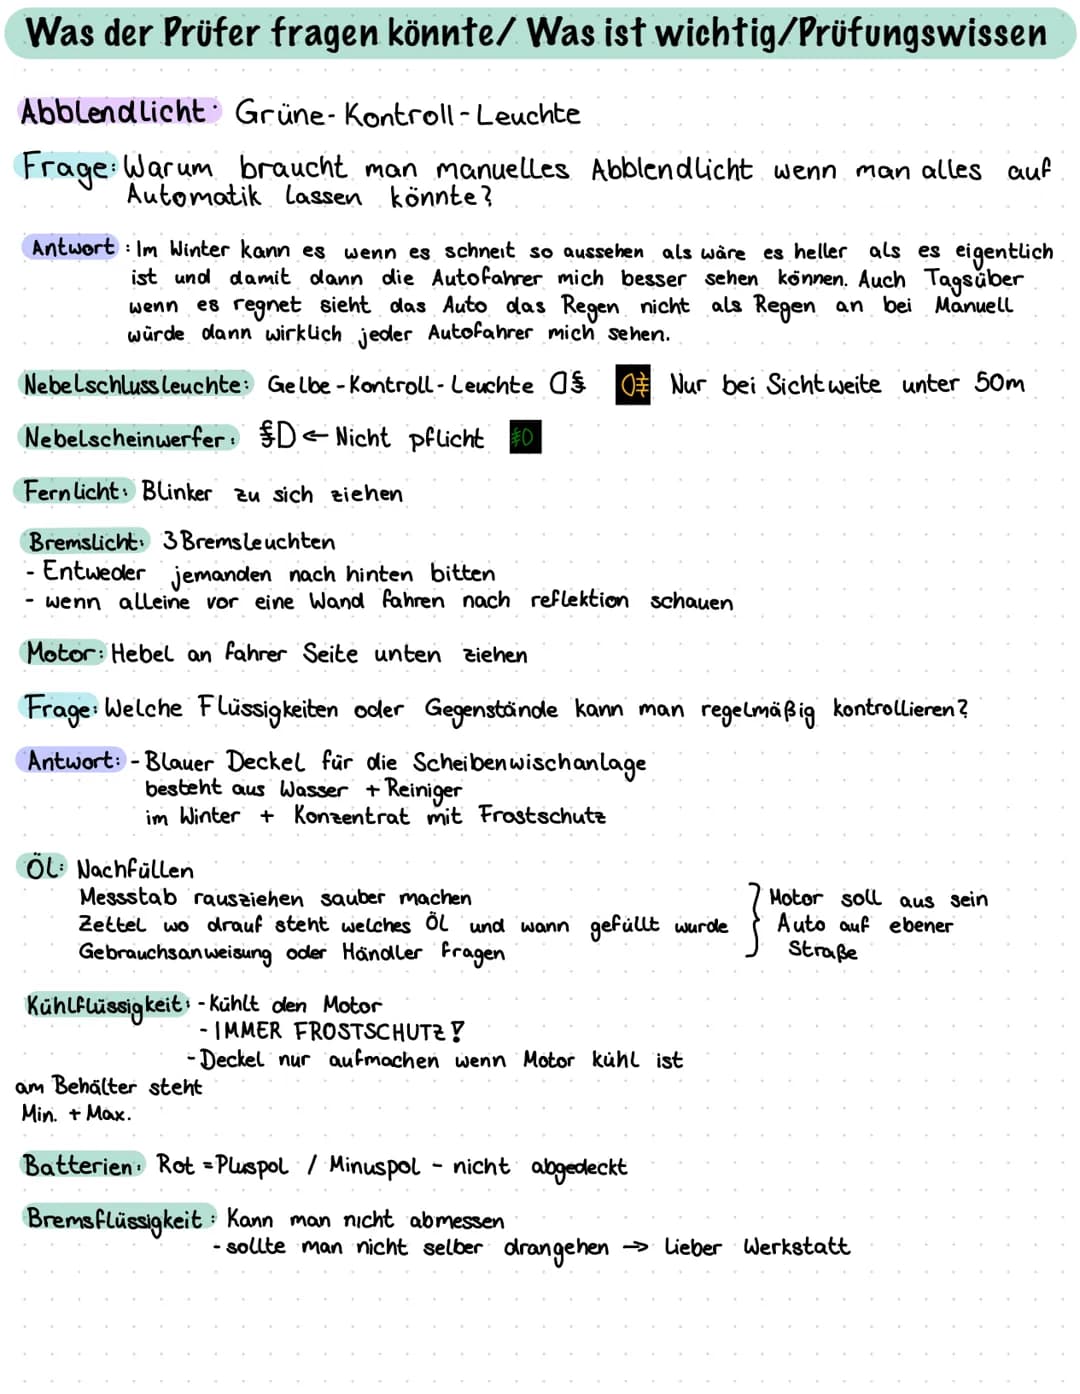 Was der Prüfer fragen könnte/ Was ist wichtig/Prüfungswissen
Abblendlicht: Grüne-Kontroll-Leuchte
Frage: Warum braucht man manuelles Abblendlicht wenn man alles auf
Automatik lassen könnte?
Antwort: Im Winter kann es wenn es schneit so aussehen als wäre es heller als es eigentlich
ist und damit dann die Autofahrer mich besser sehen können. Auch Tagsüber
wenn es regnet sieht das Auto das Regen nicht als Regen an bei Manuell
würde dann wirklich jeder Autofahrer mich sehen.
Nebelschlussleuchte: Gelbe-Kontroll-Leuchte Nur bei Sichtweite unter 50m
Nebelscheinwerfer: ← Nicht pflicht
Fernlicht: Blinker zu sich ziehen
Bremslicht: 3 Bremsleuchten
- Entweder jemanden nach hinten bitten
- wenn alleine vor eine Wand fahren nach reflektion schauen
Motor: Hebel an fahrer Seite unten ziehen
Frage: Welche Flüssigkeiten oder Gegenstände kann man regelmäßig kontrollieren?
Antwort: - Blauer Deckel für die Scheibenwischanlage
besteht aus Wasser + Reiniger
im Winter + Konzentrat mit Frostschutz
Öl: Nachfüllen
Messstab rausziehen sauber machen
Zettel wo drauf steht welches Öl und wann gefüllt wurde
Gebrauchsanweisung oder Händler fragen
} Motor soll aus sein
Auto auf ebener
Straße
Kühlflüssigkeit: - Kühlt den Motor
- IMMER FROSTSCHUTZ!
- Deckel nur aufmachen wenn Motor kühl ist
am Behälter steht
Min. + Max.
Batterien: Rot = Pluspol / Minuspol - nicht abgedeckt
Bremsflüssigkeit: Kann man nicht abmessen
- sollte man nicht selber drangehen → lieber Werkstatt